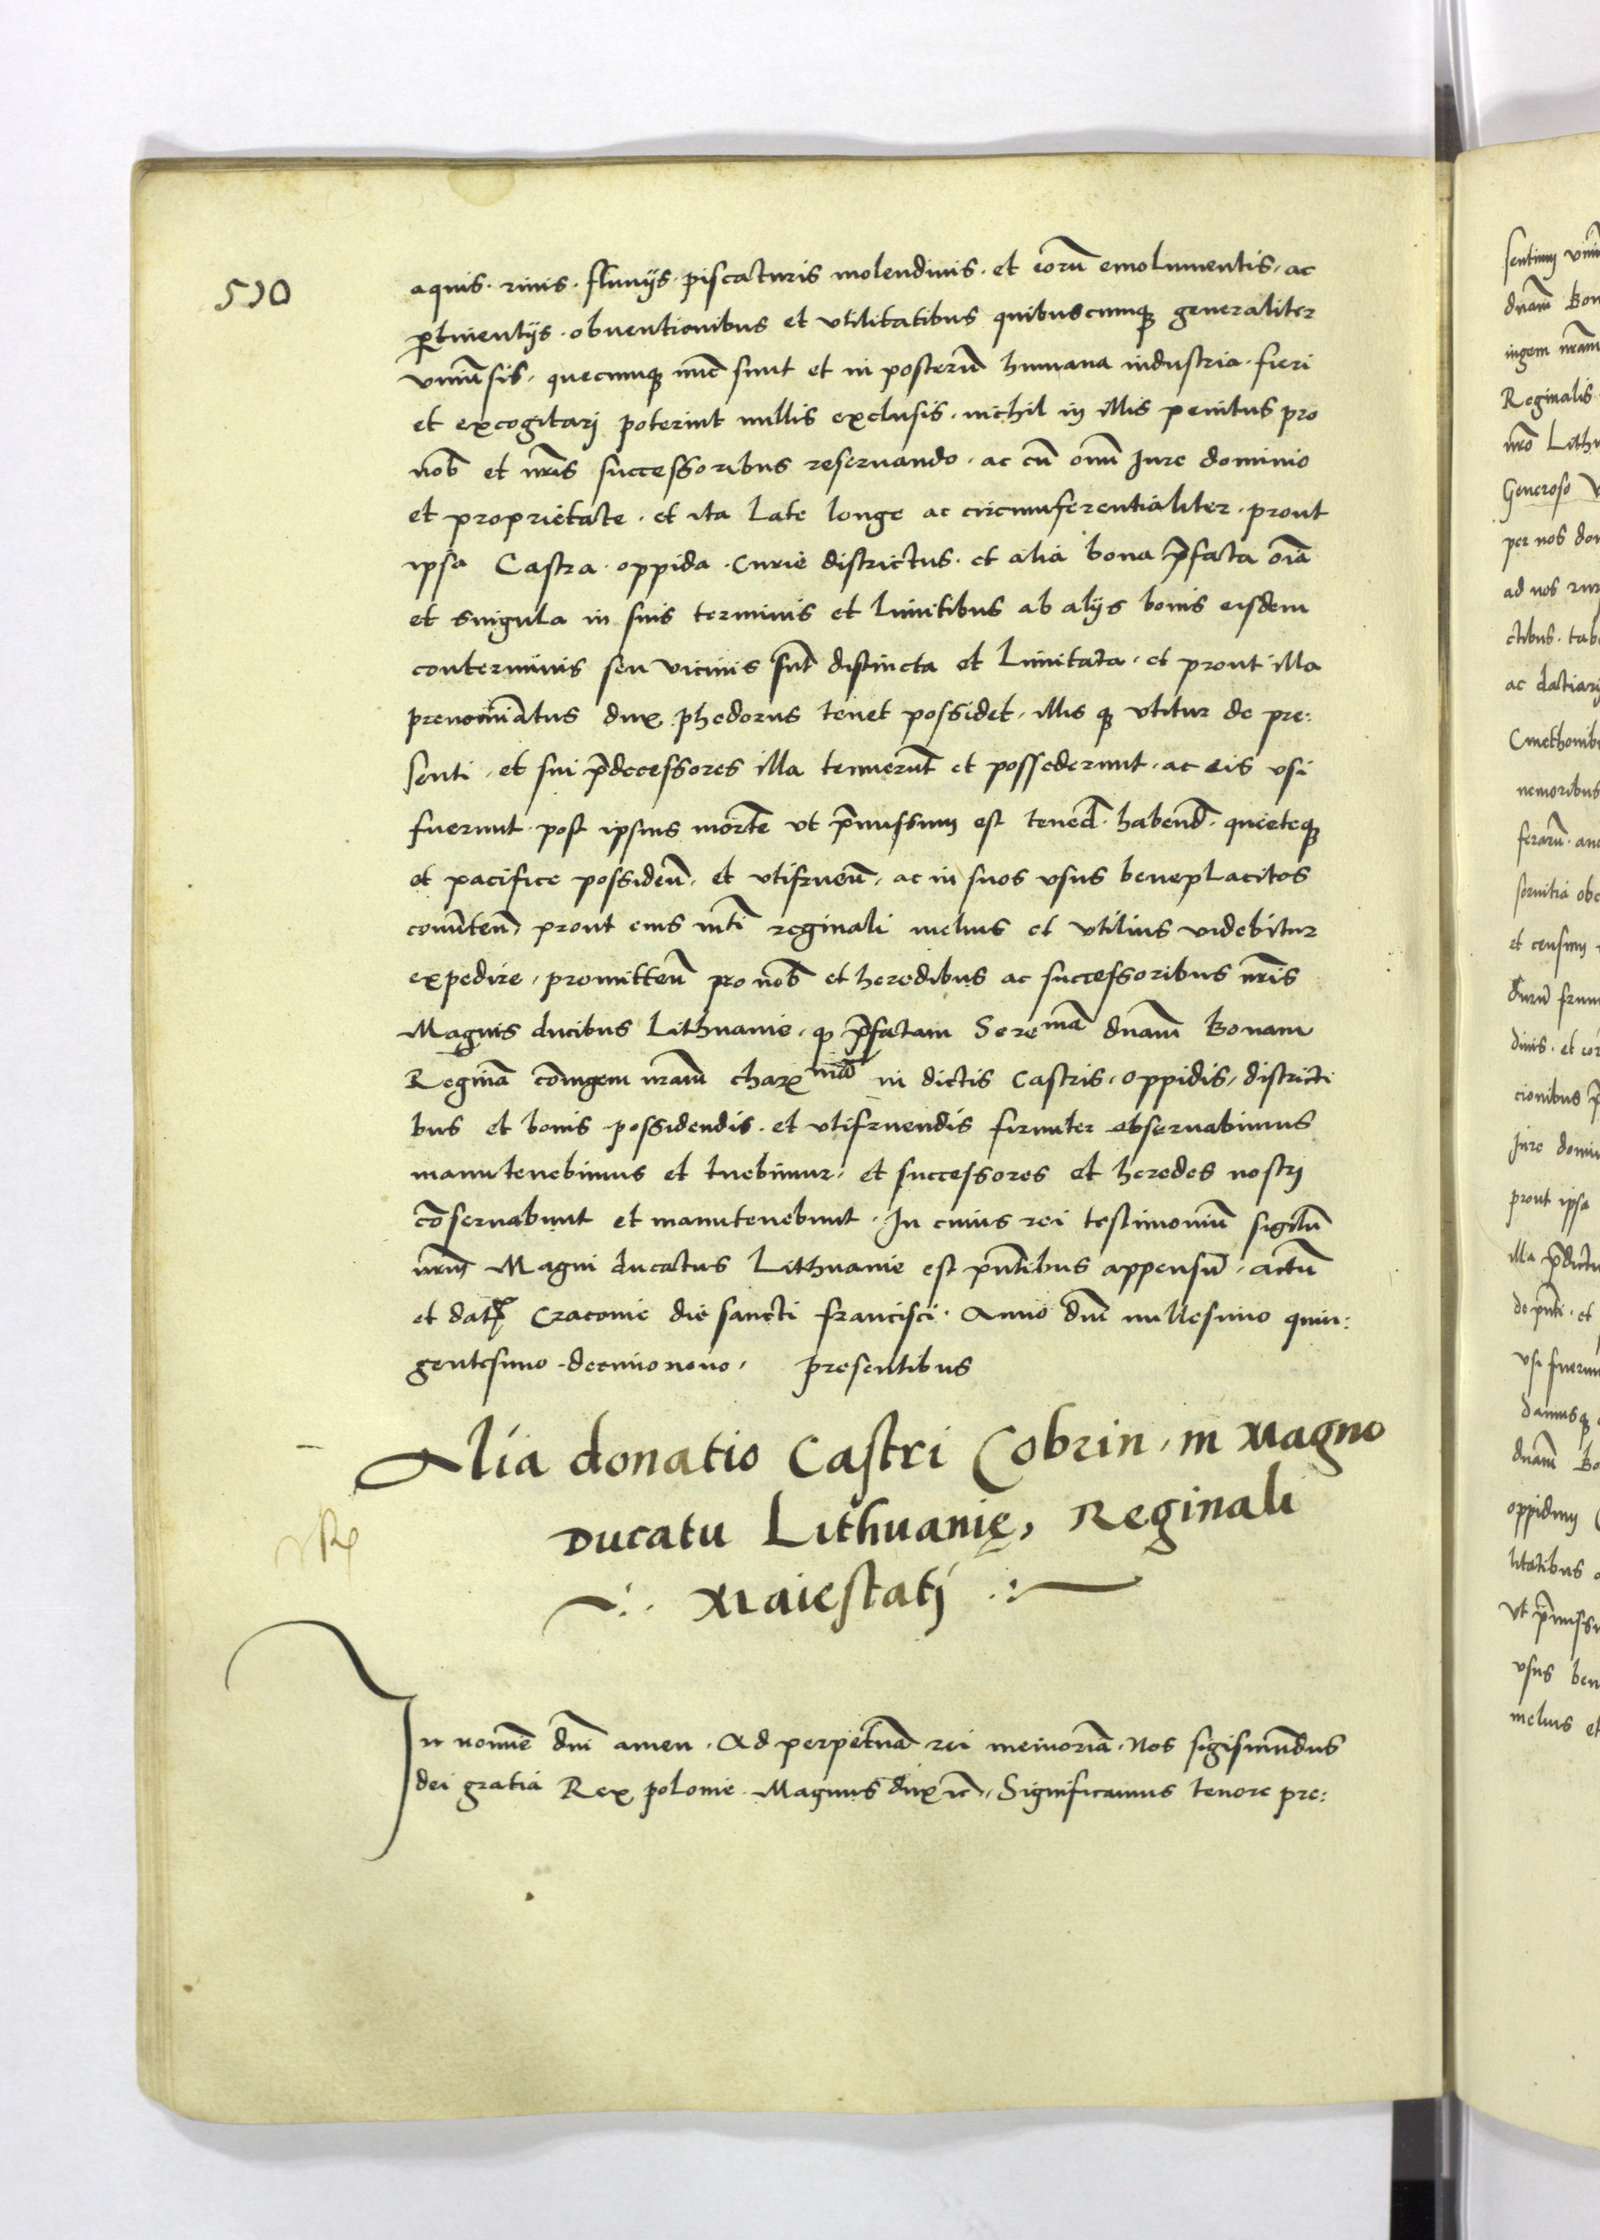 510
aquis. rivis. fluviijs. piscaturis molendinis. et eorū emolumentis, ac
ꝑtinentijs. obventionibus et vtilitatibus quibuscumqꝫ generaliter
vniūsis, quecumqꝫ nūc sunt et in posterū humana industria. fieri
et excogitarj poterint nullis exclusis. nichil in illis penitus pro
nob̄ et nr̄is successoribus reservando. ac cū om̄i Jure dominio
et proprietate. et ita late longe ac circumferentialiter. prout
ipsa Castra. oppida. Curie districtus. et alia bona p̄fata oīa
et singula in suis terminis et limitibus ab alijs bonis eisdem
conterminis seu vicinis sūt distincta et limitata. et prout illa
prenoīatus dux phedorus tenet possidet. illis qꝫ vtitur de pre:
senti. et sui p̄decessores illa tenuerūt et possederunt. ac eis vsi
fuerunt. post ipsius mortē vt p̄missum est tenēd. habend̄. quieteqꝫ
et pacifice possideñ. et vtifrueñ. ac in suos vsus beneplacitos
cōūteñ, prout eius mti reginali melius et vtilius videbitur
expedire, promitteñ pro nob̄ et heredibus ac successoribus nr̄is
Magnis ducibus Lithuanie. ꝙ p̄fatam Sere mā dnām Bonam
Reginā cōiugem nrām charx mā in dictis Castris, oppidis, districti
bus et bonis possidendis. et vtifruendis firmiter observabimus
manutenebimus et tuebimur, et successores et heredes nostrj
cōservabunt et manutenebunt. In cuius rei testimoniū sigillū
nrm̄ Magni ducatus Lithuanie est pn̄tibus appensū. actū
et datꝭ Cracovie die sancti francisci. Anno dnī millesimo quin:
gentesimo decimonono, presentibus
Alia donatio Castri Cobrin, in Magno
Ducatu Lithuanię, Reginali
Maiestatj
R
In nomīe dnī amen. Ad perpetuā rei memoriā. Nos sigismūdus
dei gratia Rex polonie. Magnus dux ꝛc, Significamus tenore pre:
sentium
dnām Bon
iugem nrām
Reginalis
nro Lith
Generoso
per nos don
ad nos
ctibus. tab
ac datiarij
Cmethonib
nemoribus
ferarū.
servitia
et censum
dinis. et eor
cionibus
Jure domi
prout ipsa
illa p̄dictu
de pn̄ti. et
vsi fuerun
damusqꝫ
dnām Bo
oppidum
litatibus
vt p̄miss
vsus ben
melius et